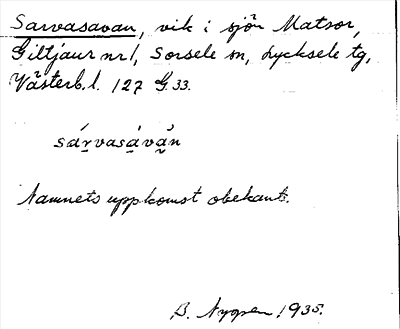 Sarvasavan, vik i sjön Matsor,
Giltjaur nr 1, Sorsele sn, Lycksele tg,
Västerb. l. 127 G. 33.
sárvasàvàn
Namnets uppkomst obekant.
B. Nygren 1935.